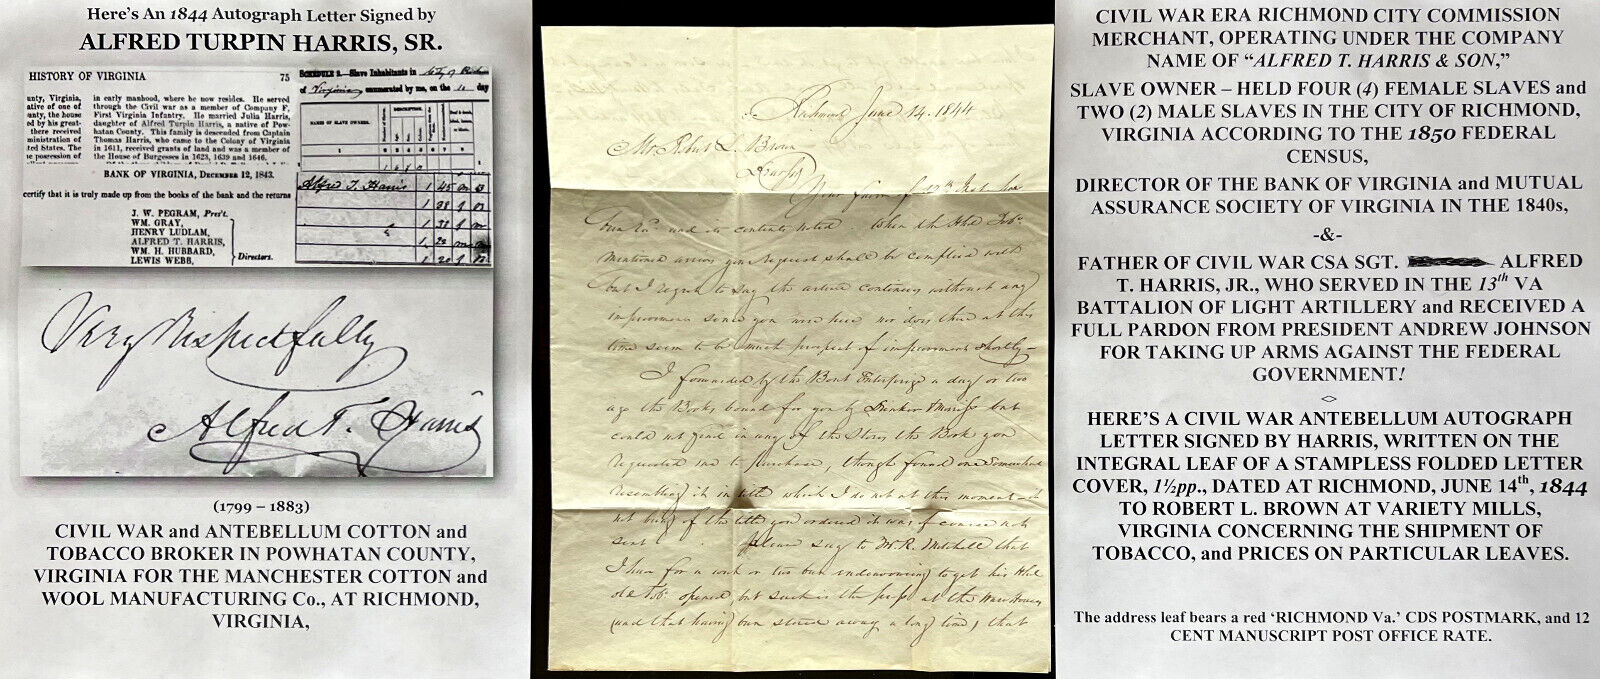 Here's An 1844 Autograph Letter Signed by
ALFRED TURPIN HARRIS, SR.
HISTORY OF VIRGINIA 75
unty, Virginia,
ative of one of
unty, the house
ed by his great-
there received
ministration of
ted States. The
he possession of
in early manhood, where he now resides. He served
through the Civil war as a member of Company F,
First Virginia Infantry. He married Julia Harris,
daughter of Alfred Turpin Harris, a native of Pow-
hatan County. This family is descended from Captain
Thomas Harris, who came to the Colony of Virginia
in 1611, received grants of land and was a member of
the House of Burgesses in 1623, 1639 and 1646.
BANK OF VIRGINIA, DECEMBER 12, 1843.
certify that it is truly made up from the books of the bank and the returns
J. W. PEGRAM, Pres't.
WM. GRAY,
HENRY LUDLAM,
ALFRED T. HARRIS,
WM. H. HUBBARD,
LEWIS WEBB,
Directors.
SCHEDULE 2.—Slave Inhabitants in City of
of Virginia enumerated by me, on the day
NAMES OF SLAVE OWNERS.
DESCRIPTION.
Alfred T. Harris 1 45 m
Very Respectfully
Alfred T. Harris
(1799 – 1883)
CIVIL WAR and ANTEBELLUM COTTON and
TOBACCO BROKER IN POWHATAN COUNTY,
VIRGINIA FOR THE MANCHESTER COTTON and
WOOL MANUFACTURING Co., AT RICHMOND,
VIRGINIA,
Richmond June 14. 1844
Mr. Robert L. Brown
Dear Sir
Your favor of 12th Inst. has
been and its contents noted. When the Hhd Tobo
mentioned arrives your request shall be complied with
but I regret to say the article continues without any
improvement since you were here nor does there at this
time seem to be much prospect of improvement shortly—
I forwarded by the Boat Enterprize a day or two
ago the Books bound for you by Drinker & Morris but
could not find in any of the Stores the Book you
requested me to purchase, though found one somewhat
resembling it in title which I do not at this moment
not being of the title you ordered it was of course not
sent. Please say to Mr. R. Mitchell that
I have for a week or two been endeavouring to get his Hhd
old Tobo opened but such is the press at the Ware House
(and that having been stored away a long time) that
CIVIL WAR ERA RICHMOND CITY COMMISSION
MERCHANT, OPERATING UNDER THE COMPANY
NAME OF “ALFRED T. HARRIS & SON,”
SLAVE OWNER – HELD FOUR (4) FEMALE SLAVES and
TWO (2) MALE SLAVES IN THE CITY OF RICHMOND,
VIRGINIA ACCORDING TO THE 1850 FEDERAL
CENSUS,
DIRECTOR OF THE BANK OF VIRGINIA and MUTUAL
ASSURANCE SOCIETY OF VIRGINIA IN THE 1840s,
-&-
FATHER OF CIVIL WAR CSA SGT. ALFRED
T. HARRIS, JR., WHO SERVED IN THE 13th VA
BATTALION OF LIGHT ARTILLERY and RECEIVED A
FULL PARDON FROM PRESIDENT ANDREW JOHNSON
FOR TAKING UP ARMS AGAINST THE FEDERAL
GOVERNMENT!
HERE'S A CIVIL WAR ANTEBELLUM AUTOGRAPH
LETTER SIGNED BY HARRIS, WRITTEN ON THE
INTEGRAL LEAF OF A STAMPLESS FOLDED LETTER
COVER, 1½pp., DATED AT RICHMOND, JUNE 14th, 1844
TO ROBERT L. BROWN AT VARIETY MILLS,
VIRGINIA CONCERNING THE SHIPMENT OF
TOBACCO, and PRICES ON PARTICULAR LEAVES.
The address leaf bears a red ‘RICHMOND Va.’ CDS POSTMARK, and 12
CENT MANUSCRIPT POST OFFICE RATE.